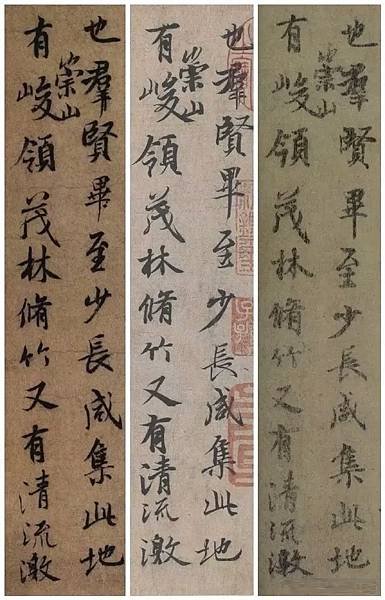 也羣賢畢至少長咸集此地
有崇山峻領茂林脩竹又有清流激
也羣賢畢至少長咸集此地
有崇山峻領茂林脩竹又有清流激
也羣賢畢至少長咸集此地
有崇山峻領茂林脩竹又有清流激